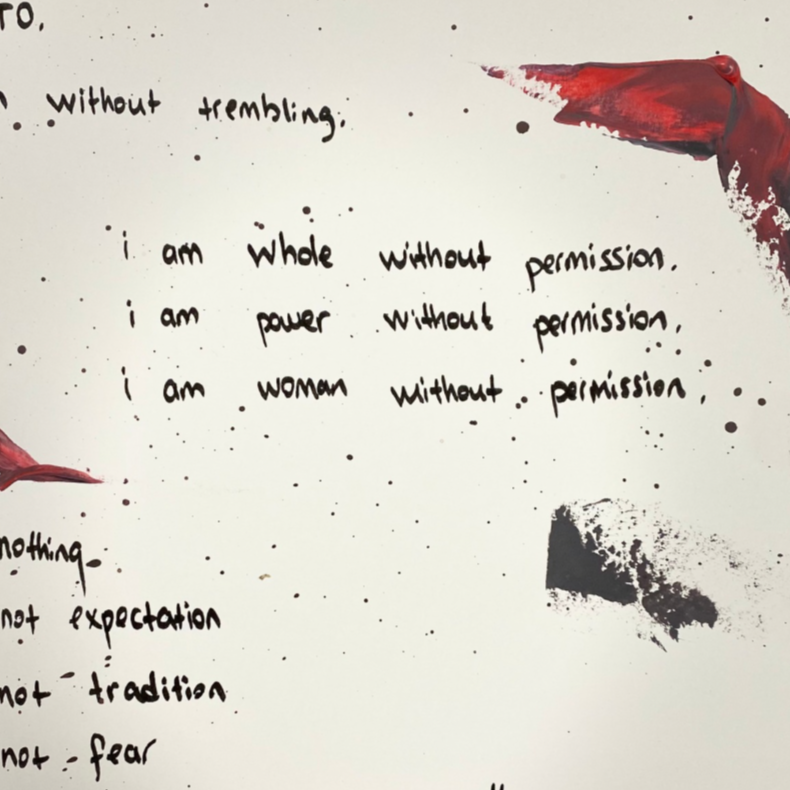 TO.
without trembling.
i am whole without permission.
i am power without permission.
i am woman without permission.
nothing
not expectation
not tradition
not fear